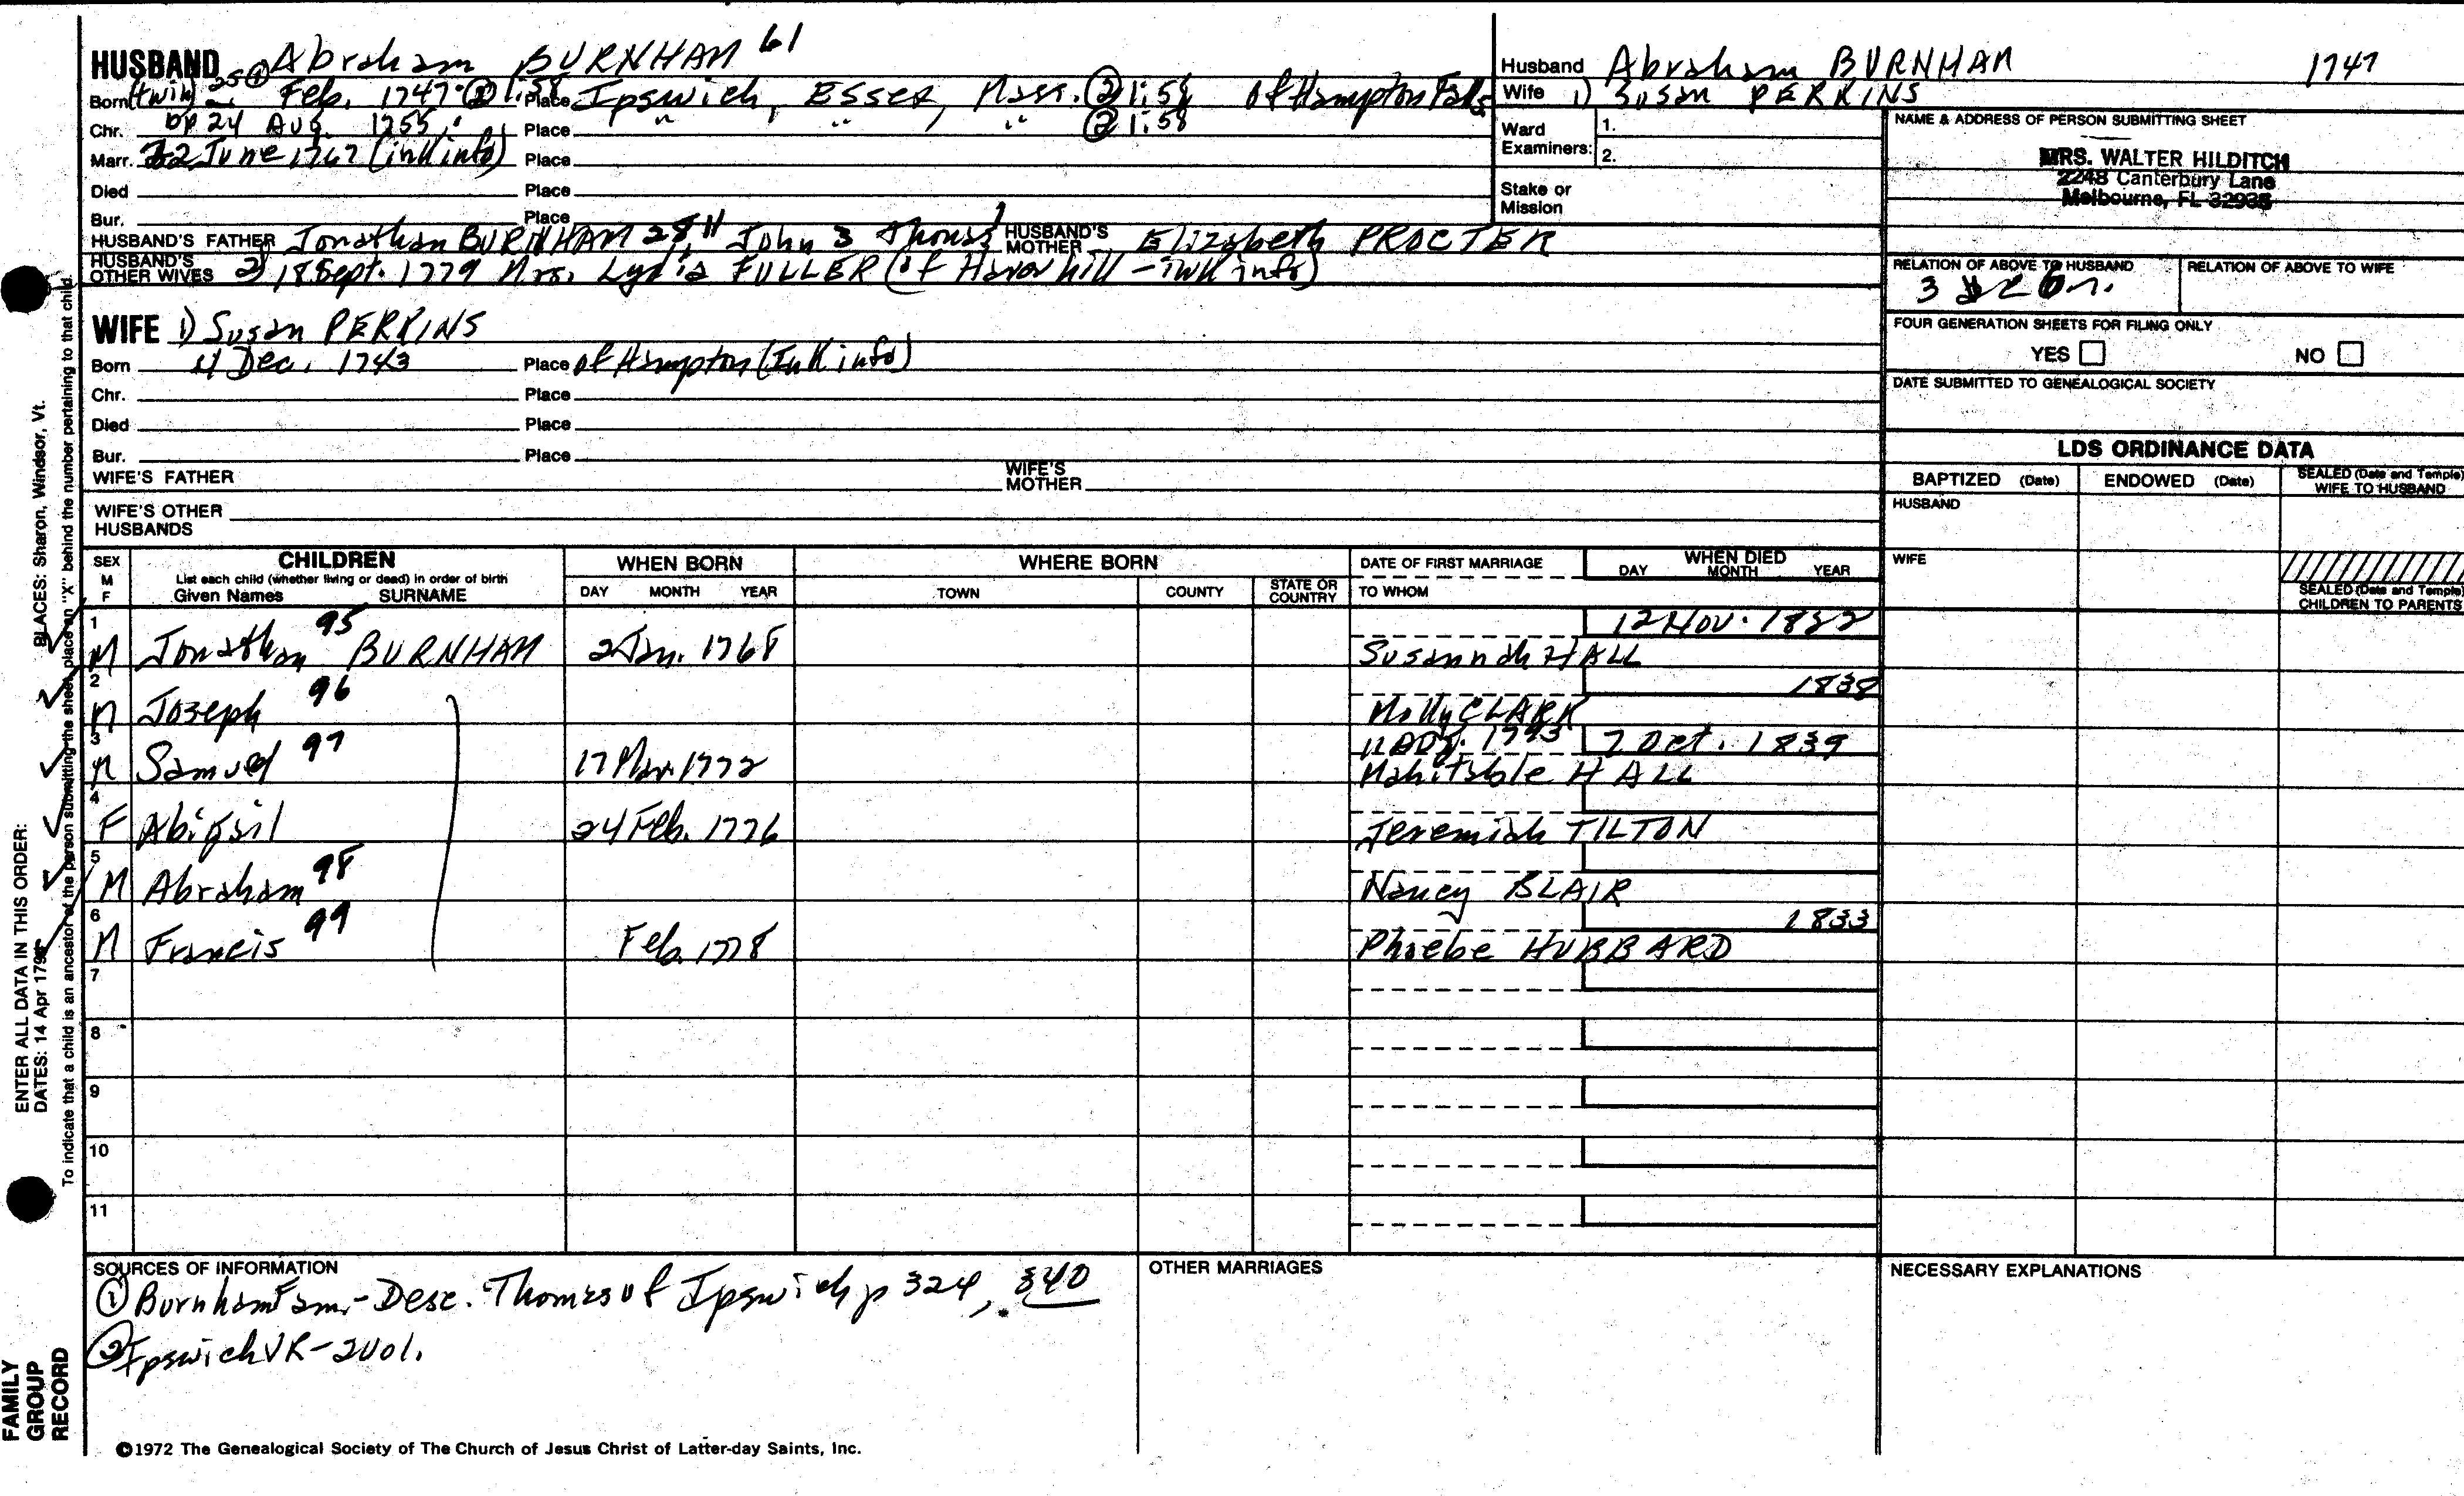 HUSBAND Abraham BURNHAM 61
Born (twin) Feb. 1747 ② 1:58 Place Ipswich, Essex, Mass. ② 1:58 of Hampton Falls
Chr. bp 24 Aug. 1755 Place " , " , " ② 1:58
Marr. 22 June 1767 (ink info) Place
Died Place
Bur. Place
HUSBAND'S FATHER Jonathan BURNHAM 28, 11 John 3 Thomas 1 HUSBAND'S MOTHER Elizabeth PROCTER
HUSBAND'S OTHER WIVES 2) 18 Sept. 1779 Mrs. Lydia FULLER (of Haverhill - ink info)
WIFE 1) Susan PERKINS
Born 11 Dec. 1743 Place of Hampton (Ink info)
Chr. Place
Died Place
Bur. Place
WIFE'S FATHER WIFE'S MOTHER
WIFE'S OTHER HUSBANDS
Husband Abraham BURNHAM 1747
Wife 1) Susan PERKINS
Ward Examiners: 1.
2.
Stake or Mission
NAME & ADDRESS OF PERSON SUBMITTING SHEET
MRS. WALTER HILDITCH
2248 Canterbury Lane
Melbourne, FL 32935
RELATION OF ABOVE TO HUSBAND RELATION OF ABOVE TO WIFE
3
FOUR GENERATION SHEETS FOR FILING ONLY
YES NO
DATE SUBMITTED TO GENEALOGICAL SOCIETY
LDS ORDINANCE DATA
BAPTIZED (Date) ENDOWED (Date) SEALED (Date and Temple) WIFE TO HUSBAND
HUSBAND
WIFE
SEALED (Date and Temple) CHILDREN TO PARENTS
SEX M F CHILDREN WHEN BORN WHERE BORN DATE OF FIRST MARRIAGE WHEN DIED
List each child (whether living or dead) in order of birth
Given Names SURNAME DAY MONTH YEAR TOWN COUNTY STATE OR COUNTRY TO WHOM DAY MONTH YEAR
1 12 Nov. 1822
M Jonathan 95 BURNHAM 2 Jan. 1768 Susannah HALL
2 1838
M Joseph 96 Molly CLARK
3 1793 7 Oct. 1839
M Samuel 97 17 Mar. 1772 Mehitable HALL
4
F Abigail 24 Feb. 1776 Jeremiah TILTON
5
M Abraham 98 Nancy BLAIR
6 1833
M Francis 99 Feb. 1778 Phoebe HUBBARD
7
8
9
10
11
SOURCES OF INFORMATION
① Burnham Fam. - Desc. Thomas of Ipswich p 324, 340
② Ipswich VR - 2 Vol.
OTHER MARRIAGES
NECESSARY EXPLANATIONS
©1972 The Genealogical Society of The Church of Jesus Christ of Latter-day Saints, Inc.
FAMILY GROUP RECORD
ENTER ALL DATA IN THIS ORDER:
DATES: 14 Apr 1794
PLACES: Sharon, Windsor, Vt.
To indicate that a child is an ancestor of the person submitting the sheet, place an "X" behind the number pertaining to that child.